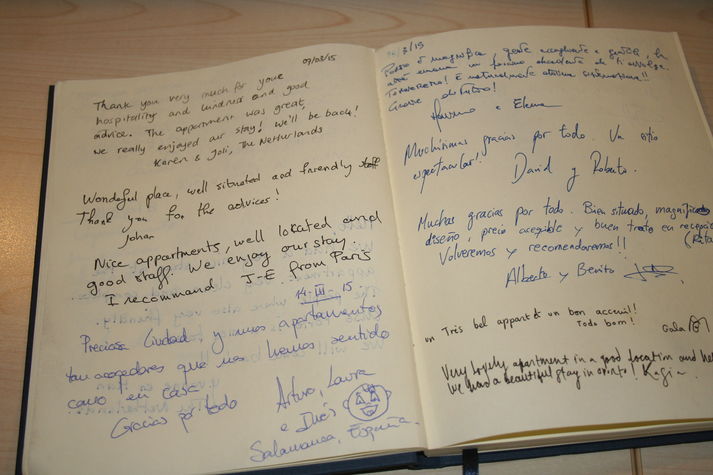 09/03/15
Thank you very much for your
hospitality and kindness and good
advice. The apartment was great,
we really enjoyed our stay! We'll be back!
Karen & Joli, The Netherlands
Wondeful place, well situated and friendly staff
Thank you for the advices!
Johan
Nice appartments, well located and
good staff. We enjoy our stay
I recommend J-E from Paris
14-III-15
Preciosa Ciudad, y unos apartamentos
tan acogedores que nos hemos sentido
como en casa
Gracias por todo
Arturo, Laura
e Inés
Salamanca, España.
/3/15
Posto è magnifico, gente accogliente e gentile, la
città emana un fascino
Torneremo! E naturalmente ottima sistemazione!!
Grazie di tutto!
e Elena
Muchísimas gracias por todo. Un sitio
espectacular!
David y Roberto.
Muchas gracias por todo. Bien situado, magnífico
diseño, precio asequible y buen trato en recepción
Volveremos y recomendaremos!!
Alberto y Benito
un Très bel appart et un bon acceuil!
Todo bom!
Gala
Very lovely apartment in a good location and
We had a beautiful stay in Oporto!